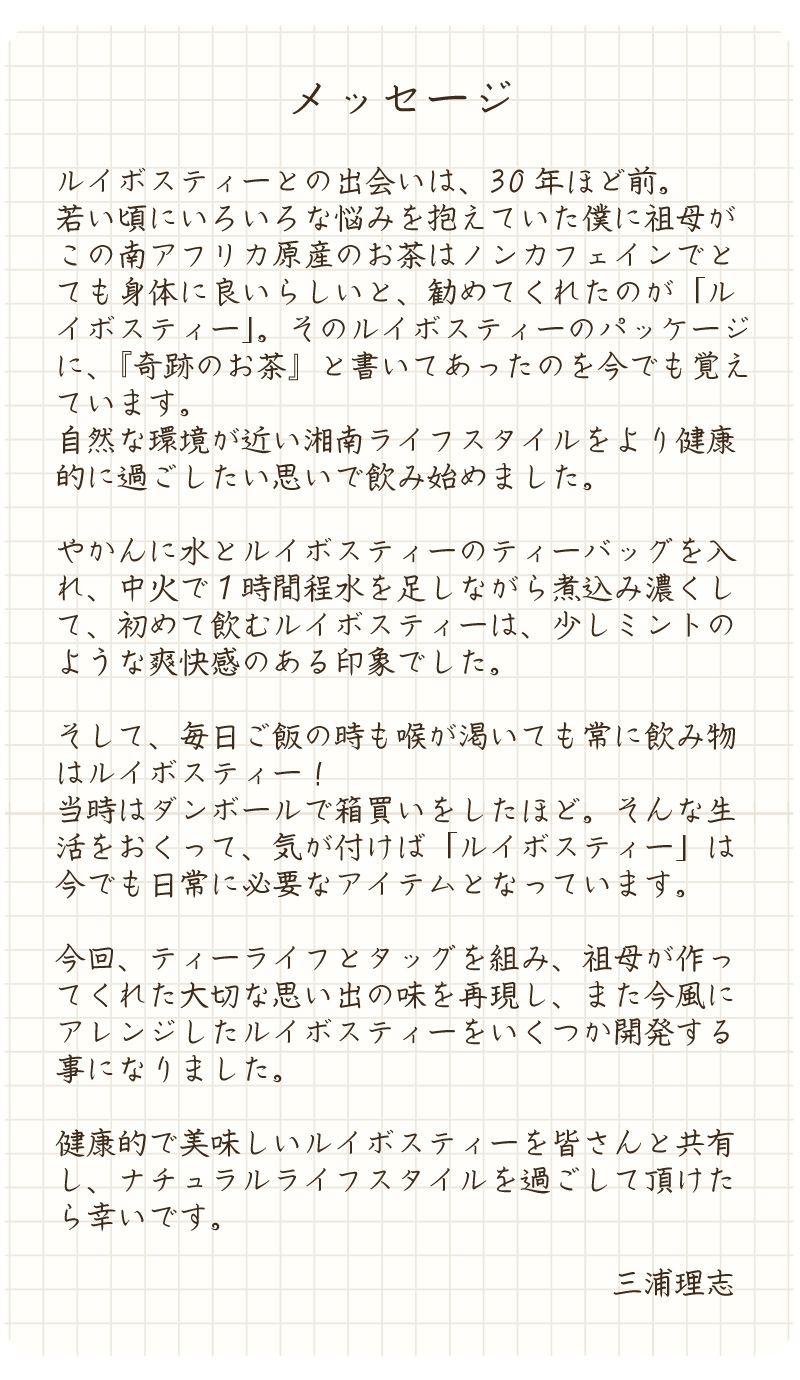 メッセージ
ルイボスティーとの出会いは、30年ほど前。
若い頃にいろいろな悩みを抱えていた僕に祖母が
この南アフリカ原産のお茶はノンカフェインでと
ても身体に良いらしいと、勧めてくれたのが「ル
イボスティー」。そのルイボスティーのパッケージ
に、『奇跡のお茶』と書いてあったのを今でも覚え
ています。
自然な環境が近い湘南ライフスタイルをより健康
的に過ごしたい思いで飲み始めました。
やかんに水とルイボスティーのティーバッグを入
れ、中火で1時間程水を足しながら煮込み濃くし
て、初めて飲むルイボスティーは、少しミントの
ような爽快感のある印象でした。
そして、毎日ご飯の時も喉が渇いても常に飲み物
はルイボスティー！
当時はダンボールで箱買いをしたほど。そんな生
活をおくって、気が付けば「ルイボスティー」は
今でも日常に必要なアイテムとなっています。
今回、ティーライフとタッグを組み、祖母が作っ
てくれた大切な思い出の味を再現し、また今風に
アレンジしたルイボスティーをいくつか開発する
事になりました。
健康的で美味しいルイボスティーを皆さんと共有
し、ナチュラルライフスタイルを過ごして頂けた
ら幸いです。
三浦理志